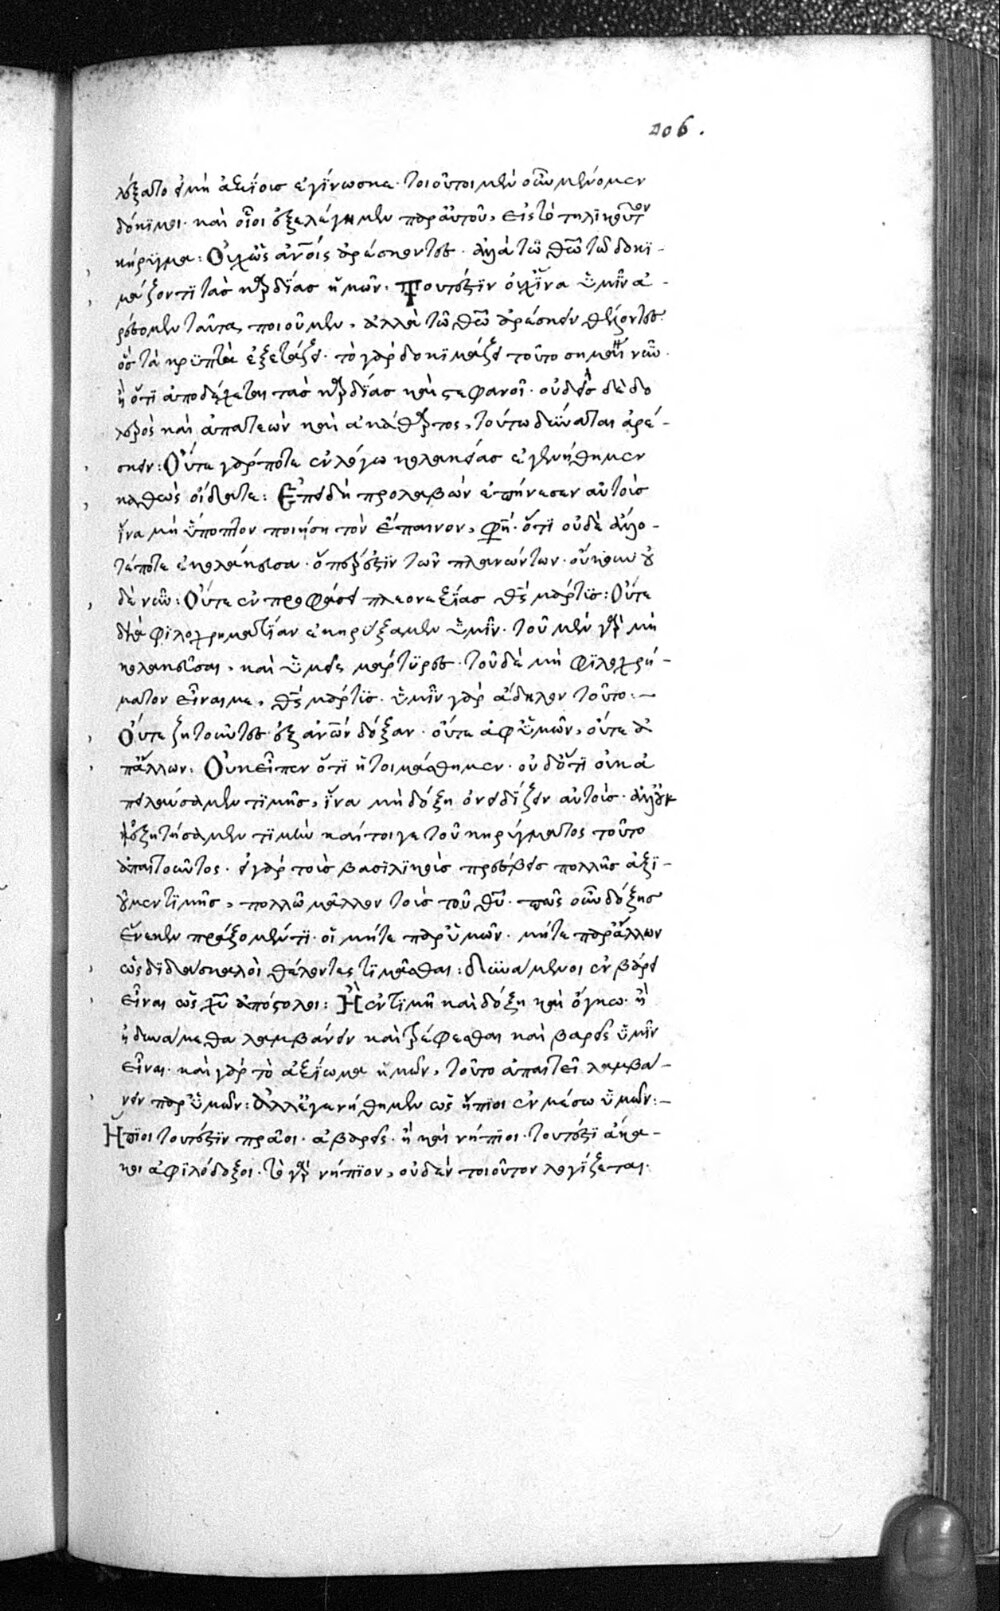 206.
λέξατο εἰ μὴ ἀξίοις ἐγίνωσκε· τοιοῦτοι μὲν οὖν μένομεν
δόκιμοι· καὶ οἷοι ἐξελέγημεν παρ' αὐτοῦ, εἰς τὸ τηλικοῦτον
κήρυγμα: Οὐχ ὡς ἀνοις ἀρέσκοντες· ἀλλὰ τῶ θῶ τῶ δοκι-
μάζοντι τὰς καρδίας ἡμῶν· Τουτέστιν οὐχ ἵνα ὑμῖν ἀ-
ρέσωμεν ταῦτα ποιοῦμεν, ἀλλὰ τῶ θῶ ἀρέσκειν θέλοντες·
ὃς τὰ κρυπτὰ ἐξετάζει· τὸ γὰρ δοκιμάζει τοῦτο σημαίνει νῦν·
ἢ ὅτι ἀποδέχεται τὰς καρδίας καὶ στεφανοῖ· οὐδεὶς δὲ δο
λερὸς καὶ ἀπατεὼν καὶ ἀκάθαρτος, τούτω δύναται ἀρέ-
σκειν: Οὔτε γάρ ποτε ἐν λόγω κολακείας ἐγενήθημεν
καθὼς οἴδατε: Ἐπειδὴ προλαβὼν ἐπήνεσεν αὐτοὺς
ἵνα μὴ ὕποπτον ποιήση τὸν ἔπαινον, φησίν· ὅτι οὐδὲ ἄλλο-
τέ ποτε ἐκολάκευσα· ὅπερ ἐστὶν τῶν πλανώντων· οὔκουν οὐ
δὲ νῦν: Οὔτε ἐν προφάσει πλεονεξίας θς μάρτυς: Οὔτε
διὰ φιλοχρηματίαν ἐκηρύξαμεν ὑμῖν· τοῦ μὲν γὰρ μὴ
κολακεῦσαι, καὶ ὑμεῖς μάρτυρες· τοῦ δὲ μὴ φιλοχρή-
ματον εἶναί με, θς μάρτυς· ὑμῖν γὰρ ἄδηλον τοῦτο:-
Οὔτε ζητοῦντες ἐξ ἀνων δόξαν· οὔτε ἀφ' ὑμῶν, οὔτε ἀ
π' ἄλλων: Οὐκ εἶπεν ὅτι ἠτοιμάσθημεν· οὐδ' ὅτι οὐκ ἀ
πελαύσαμεν τιμῆς, ἵνα μὴ δόξη ὀνειδίζειν αὐτοὺς· ἀλλ' οὐκ
ἐξητήσαμεν τιμὴν καίτοιγε τοῦ κηρύγματος τοῦτο
ἀπαιτοῦντος· εἰ γὰρ τοὺς βασιλικοὺς πρέσβεις πολλῆς ἀξι-
οῦμεν τιμῆς, πολλῶ μᾶλλον τοὺς τοῦ θῦ· πῶς οὖν δόξης
ἕνεκεν πράξομέν τι· οἱ μήτε παρ' ὑμῶν· μήτε παρ' ἄλλων
ὡς διδάσκαλοι θέλοντες τιμᾶσθαι: δυνάμενοι ἐν βάρει
εἶναι ὡς χῦ ἀπόστολοι: Ἢ ἐν τιμῆ καὶ δόξη καὶ ὄγκω· ἢ
ἠδυνάμεθα λαμβάνειν καὶ τρέφεσθαι καὶ βαρεῖς ὑμῖν
εἶναι· καὶ γὰρ τὸ ἀξίωμα ἡμῶν, τοῦτο ἀπαιτεῖ λαμβά-
νειν παρ' ὑμῶν: Ἀλλ' ἐγενήθημεν ὡς ἤπιοι ἐν μέσω ὑμῶν:-
Ἤπιοι τουτέστιν πρᾶοι· ἀβαρεῖς· ἢ καὶ νήπιοι· τουτέστι ἄκα-
κοι ἀφιλόδοξοι· τὸ γὰρ νήπιον, οὐδὲν τοιοῦτον λογίζεται·